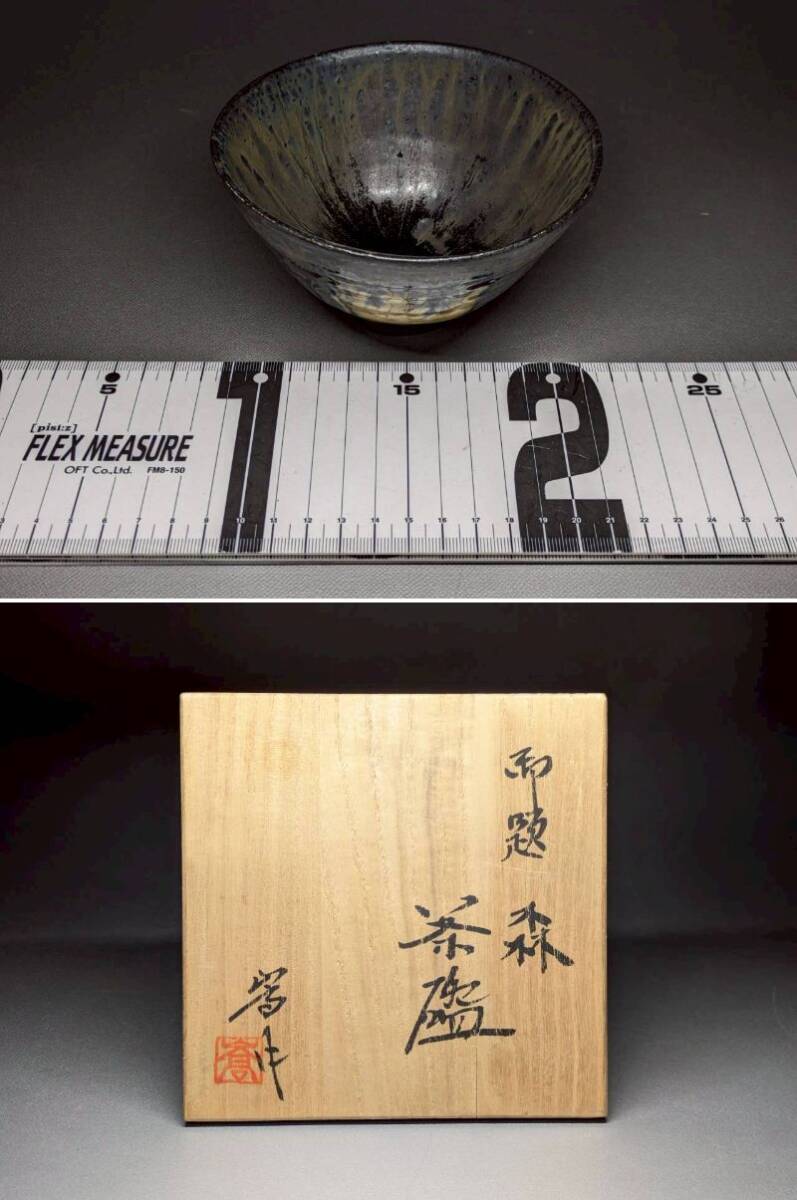 5
1
15
2
25
[pist:z]
FLEX MEASURE
OFT Co.,Ltd. FM8-150
3 4 5 6 7 8 9 10 11 12 13 14 15 16 17 18 19 20 21 22 23 24 25 26
御題 森
茶盌